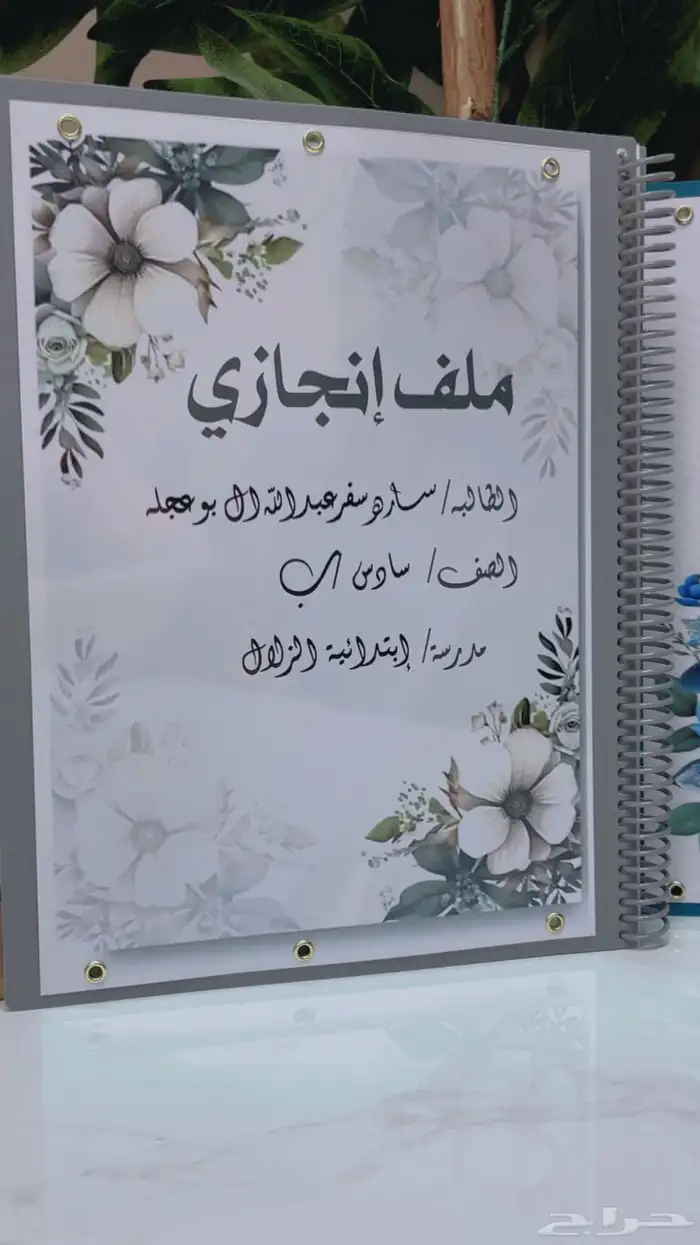 ملف إنجازي
الطالبة/ ساره سفر عبدالله ال بوعجله
الصف/ سادس /ب
مدرسة/ إبتدائية الزلال
حراج